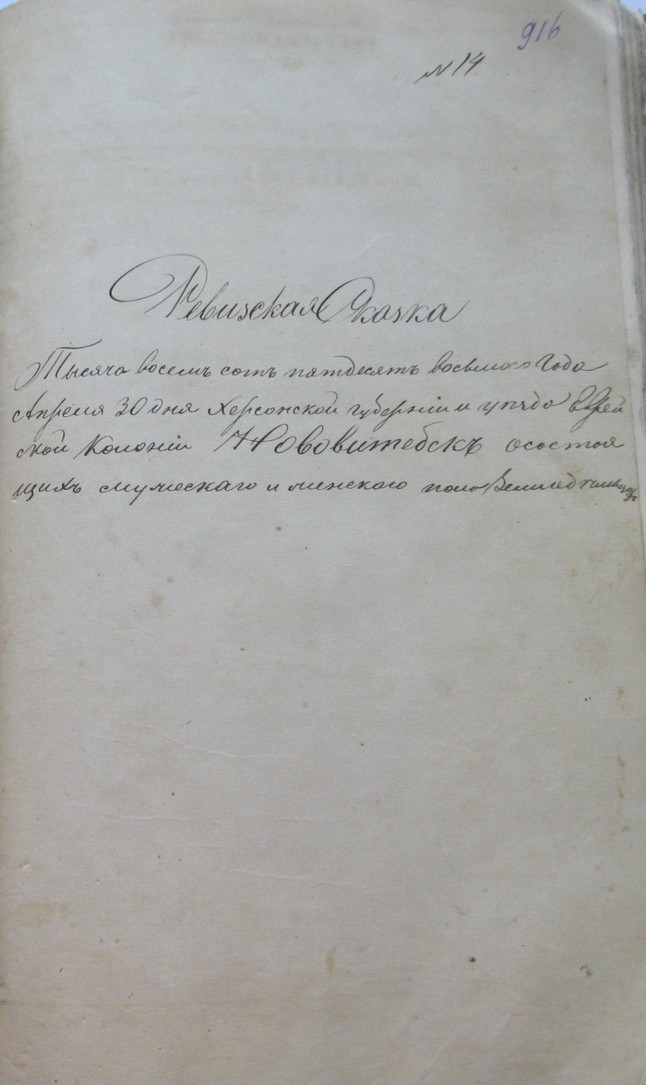 916
№ 14
Ревизская Сказка
Тысяча восемь сотъ пятдесятъ восьмого года
Апреля 30 дня Херсонской губерніи и уезда Еврей
ской Колоніи Нововитебскъ осостоя
щихъ мужескаго и женскаго пола Земледельцахъ